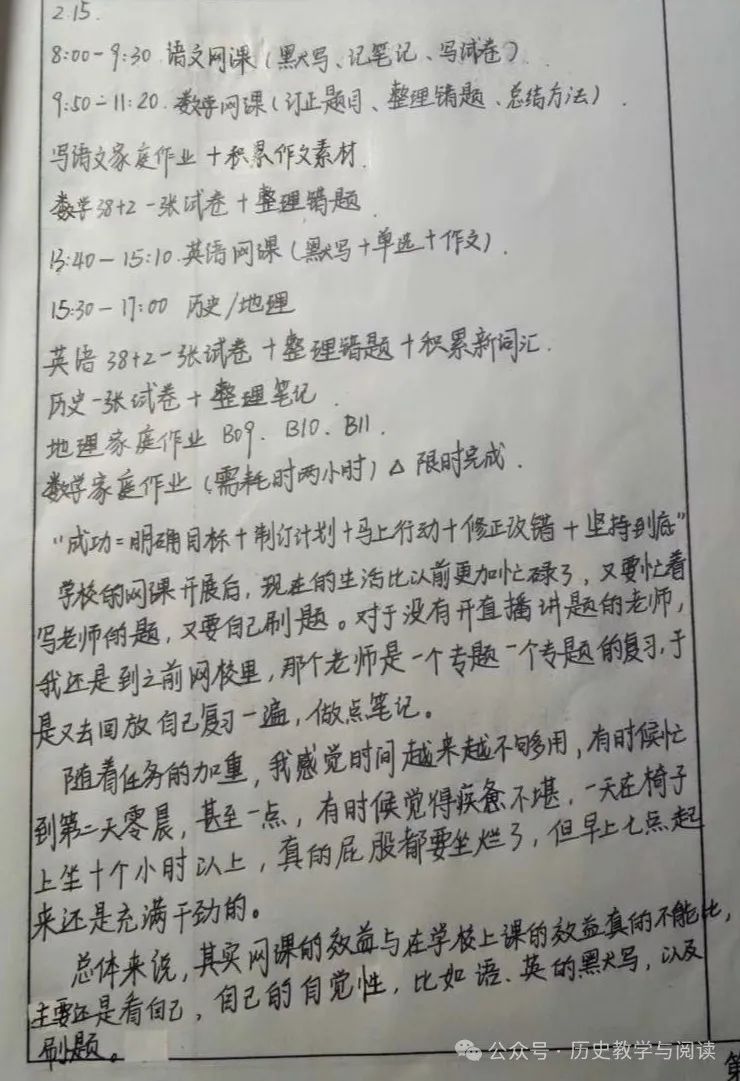 2.15.
8:00-9:30 语文网课（默写、记笔记、写试卷）.
9:50-11:20. 数学网课（订正题目、整理错题、总结方法）.
写语文家庭作业+积累作文素材.
数学38+2一张试卷+整理错题.
13:40-15:10.英语网课（默写+单选+作文）.
15:30-17:00 历史/地理
英语38+2一张试卷+整理错题+积累新词汇.
历史一张试卷+整理笔记.
地理家庭作业 B09. B10. B11.
数学家庭作业（需耗时两小时）△ 限时完成.
“成功=明确目标+制订计划+马上行动+修正改错+坚持到底”
学校的网课开展后，现在的生活比以前更加忙碌了，又要忙着
写老师的题，又要自己刷题。对于没有开直播讲题的老师，
我还是到之前网校里，那个老师是一个专题一个专题的复习，于
是又去回放自己复习一遍，做点笔记。
随着任务的加重，我感觉时间越来越不够用，有时候忙
到第二天零晨，甚至一点，有时候觉得疾惫不堪，一天在椅子
上坐十个小时以上，真的屁股都要坐烂了，但早上七点起
来还是充满干劲的。
总体来说，其实网课的效益与在学校上课的效益真的不能比，
主要还是看自己，自己的自觉性，比如语、英的默写，以及
刷题。
公众号·历史教学与阅读
第